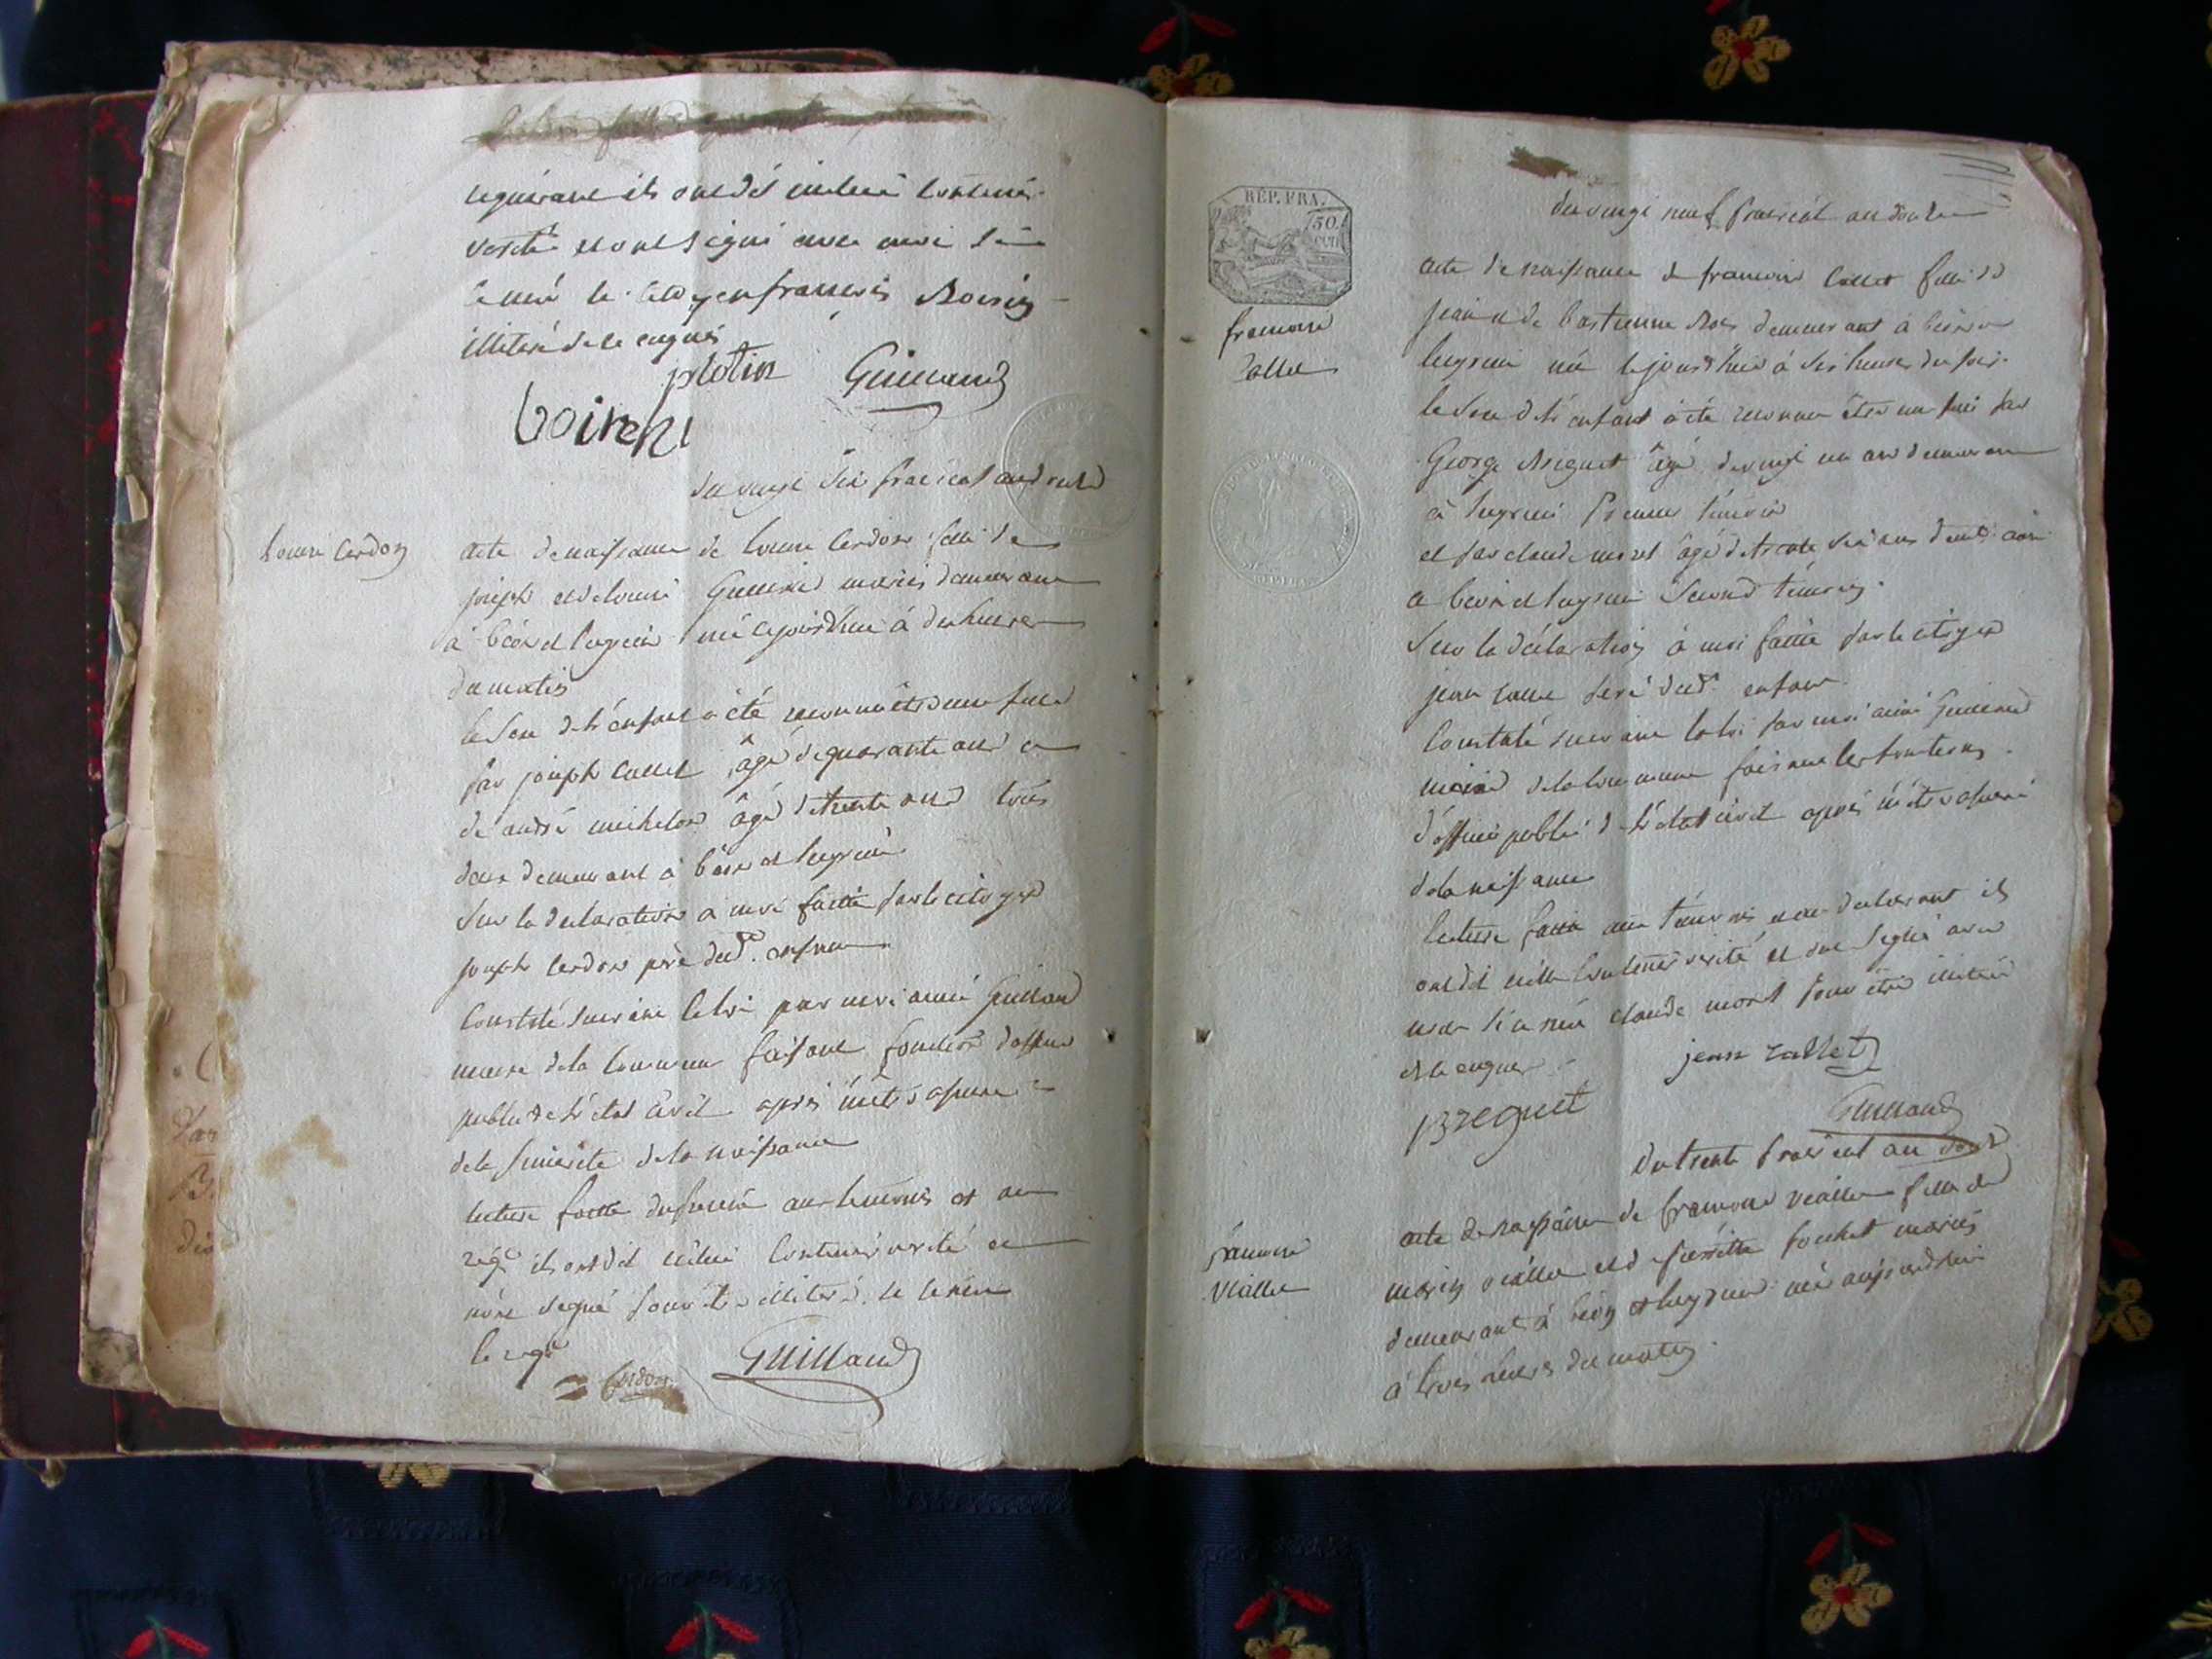 requérant ils ont dit icelui contenir
vérité et ont signé avec moi
le citoyen françois
illitéré de ce enquis
plotin Guilland
du vingt six prairial an douze
Louise Cerdon
acte de naissance de Louise Cerdon fille de
joseph et de Louise Guilland mariés demeurant
à béon et luyrieu née cejourdhui à dix heures
du matin
le sexe de l'enfant a été reconnu être une fille
par joseph Callet âgé de quarante ans et
de andré michelon âgé de trente ans tous
deux demeurant à béon et luyrieu
Sur la declaration à moi faitte par le citoyen
joseph Cerdon père dud. enfant
Constaté suivant la loi par moi aimé Guilland
maire de la Commune faisant fonction d'officier
public de l'état civil après m'être assuré
de la sincérité de la naissance
lecture faitte du présent aux temoins et au
reqt ils ont dit icelui Contenir vérité et
n'ont signé pour être illitéré
le reqt
Cerdon Guilland
REP. FRA.
50.
du vingt neuf prairial an douze
francoise
Callet
acte de naissance de francoise Callet fille de
jean et de bastienne demeurant à béon et
luyrieu née cejourd'huis à six heures du soir
le sexe de l'enfant à été reconnu être une fille par
George Breguet âgé de vingt un ans demeurant
à luyrieu Premier témoin
et par claude moret âgé de trente six ans demt. aussi
a beon et luyrieu Second témoin.
Sur la déclaration à moi faitte par le citoyen
jean Callet père dud. enfant.
Constaté suivant la loi par moi aimé Guilland
maire de la Commune faisant les fonctions
d'officier public de l'état civil après m'être assuré
de la naissance
lecture faitte aux témoins et au déclarant ils
ont dit icelle Contenir vérité et ont signé avec
moi claude moret pour être illitéré
de ce enquis
jean Callet
Breguet
Guilland
du trente prairial an douze
francoise
Viallet
acte de naissance de francoise Viallet fille de
marin Viallet et de pierrette mariés
demeurant à béon et luyrieu née aujourdhui
à trois heures du matin.